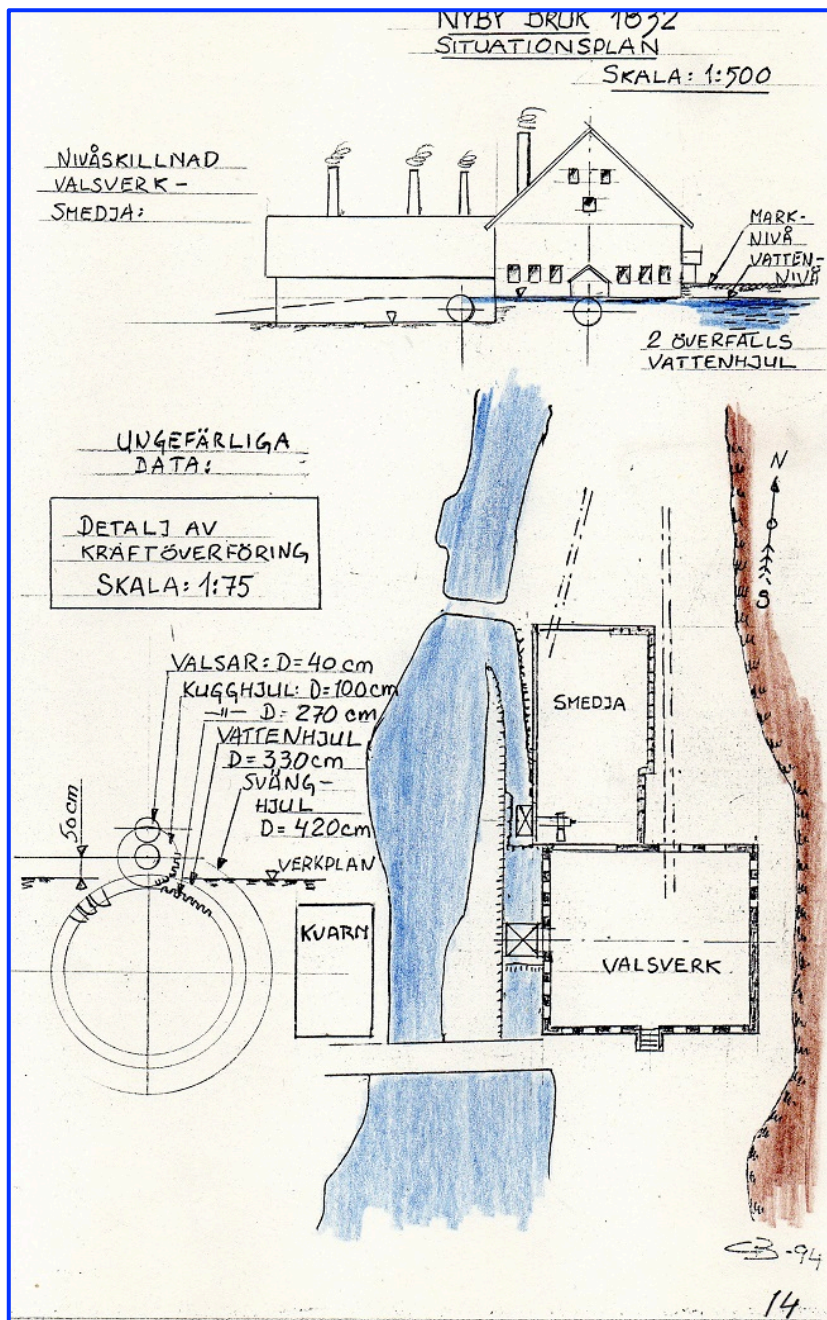 NYBY BRUK 1832
SITUATIONSPLAN
SKALA: 1:500
NIVÅSKILLNAD
VALSVERK-
SMEDJA:
MARK-
NIVÅ
VATTEN-
NIVÅ
2 ÖVERFALLS
VATTENHJUL
UNGEFÄRLIGA
DATA:
DETALJ AV
KRAFTÖVERFÖRING
SKALA: 1:75
N
S
VALSAR: D=40 cm
KUGGHJUL: D=100cm
-"- D= 270 cm
VATTENHJUL
D=330cm
SVÄNG-
HJUL
D= 420cm
50cm
VERKPLAN
SMEDJA
KVARN
VALSVERK
CB -94
14